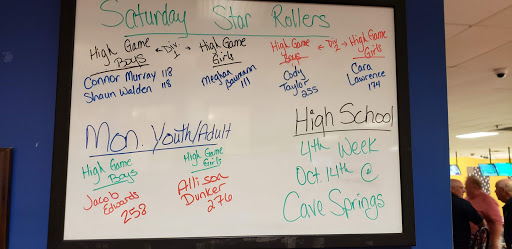 Saturday Star Rollers
High Game
BOYS
← Div. 1 →
High Game
Girls
Connor Murray 118
Shaun Walden 118
Meghan
Baumann
111
High Game
Boys
← Div. 2 →
High Game
Girls
Cody
Taylor
255
Cara
Lawrence
174
Mon. Youth/Adult
High Game
Boys
High Game
Girls
Jacob
Edwards
258
Allison
Dunker
276
High School
4th Week
Oct. 14th @
Cave Springs